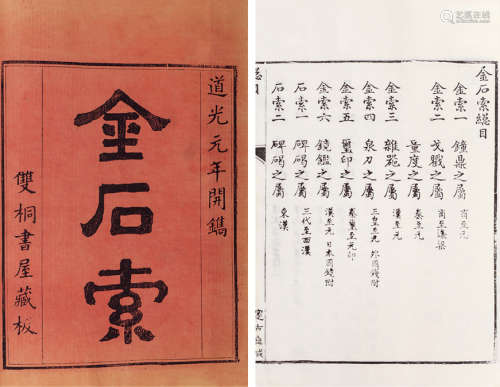 道光元年開鐫
金石索
雙桐書屋藏板
金石索緫目
金索一 鐘鼎之屬 商至元
金索二 戈戟之屬 商至蕭梁
量度之屬 秦至元
金索三 雜器之屬 漢至元
金索四 泉刀之屬 三皇至元 外國錢附
金索五 璽印之屬 秦璽至元印
金索六 鏡鑑之屬 漢至元 日本國鏡附
石索一 碑碣之屬 三代至西漢
石索二 碑碣之屬 東漢
緫目
邃古齋藏
艺狐在线